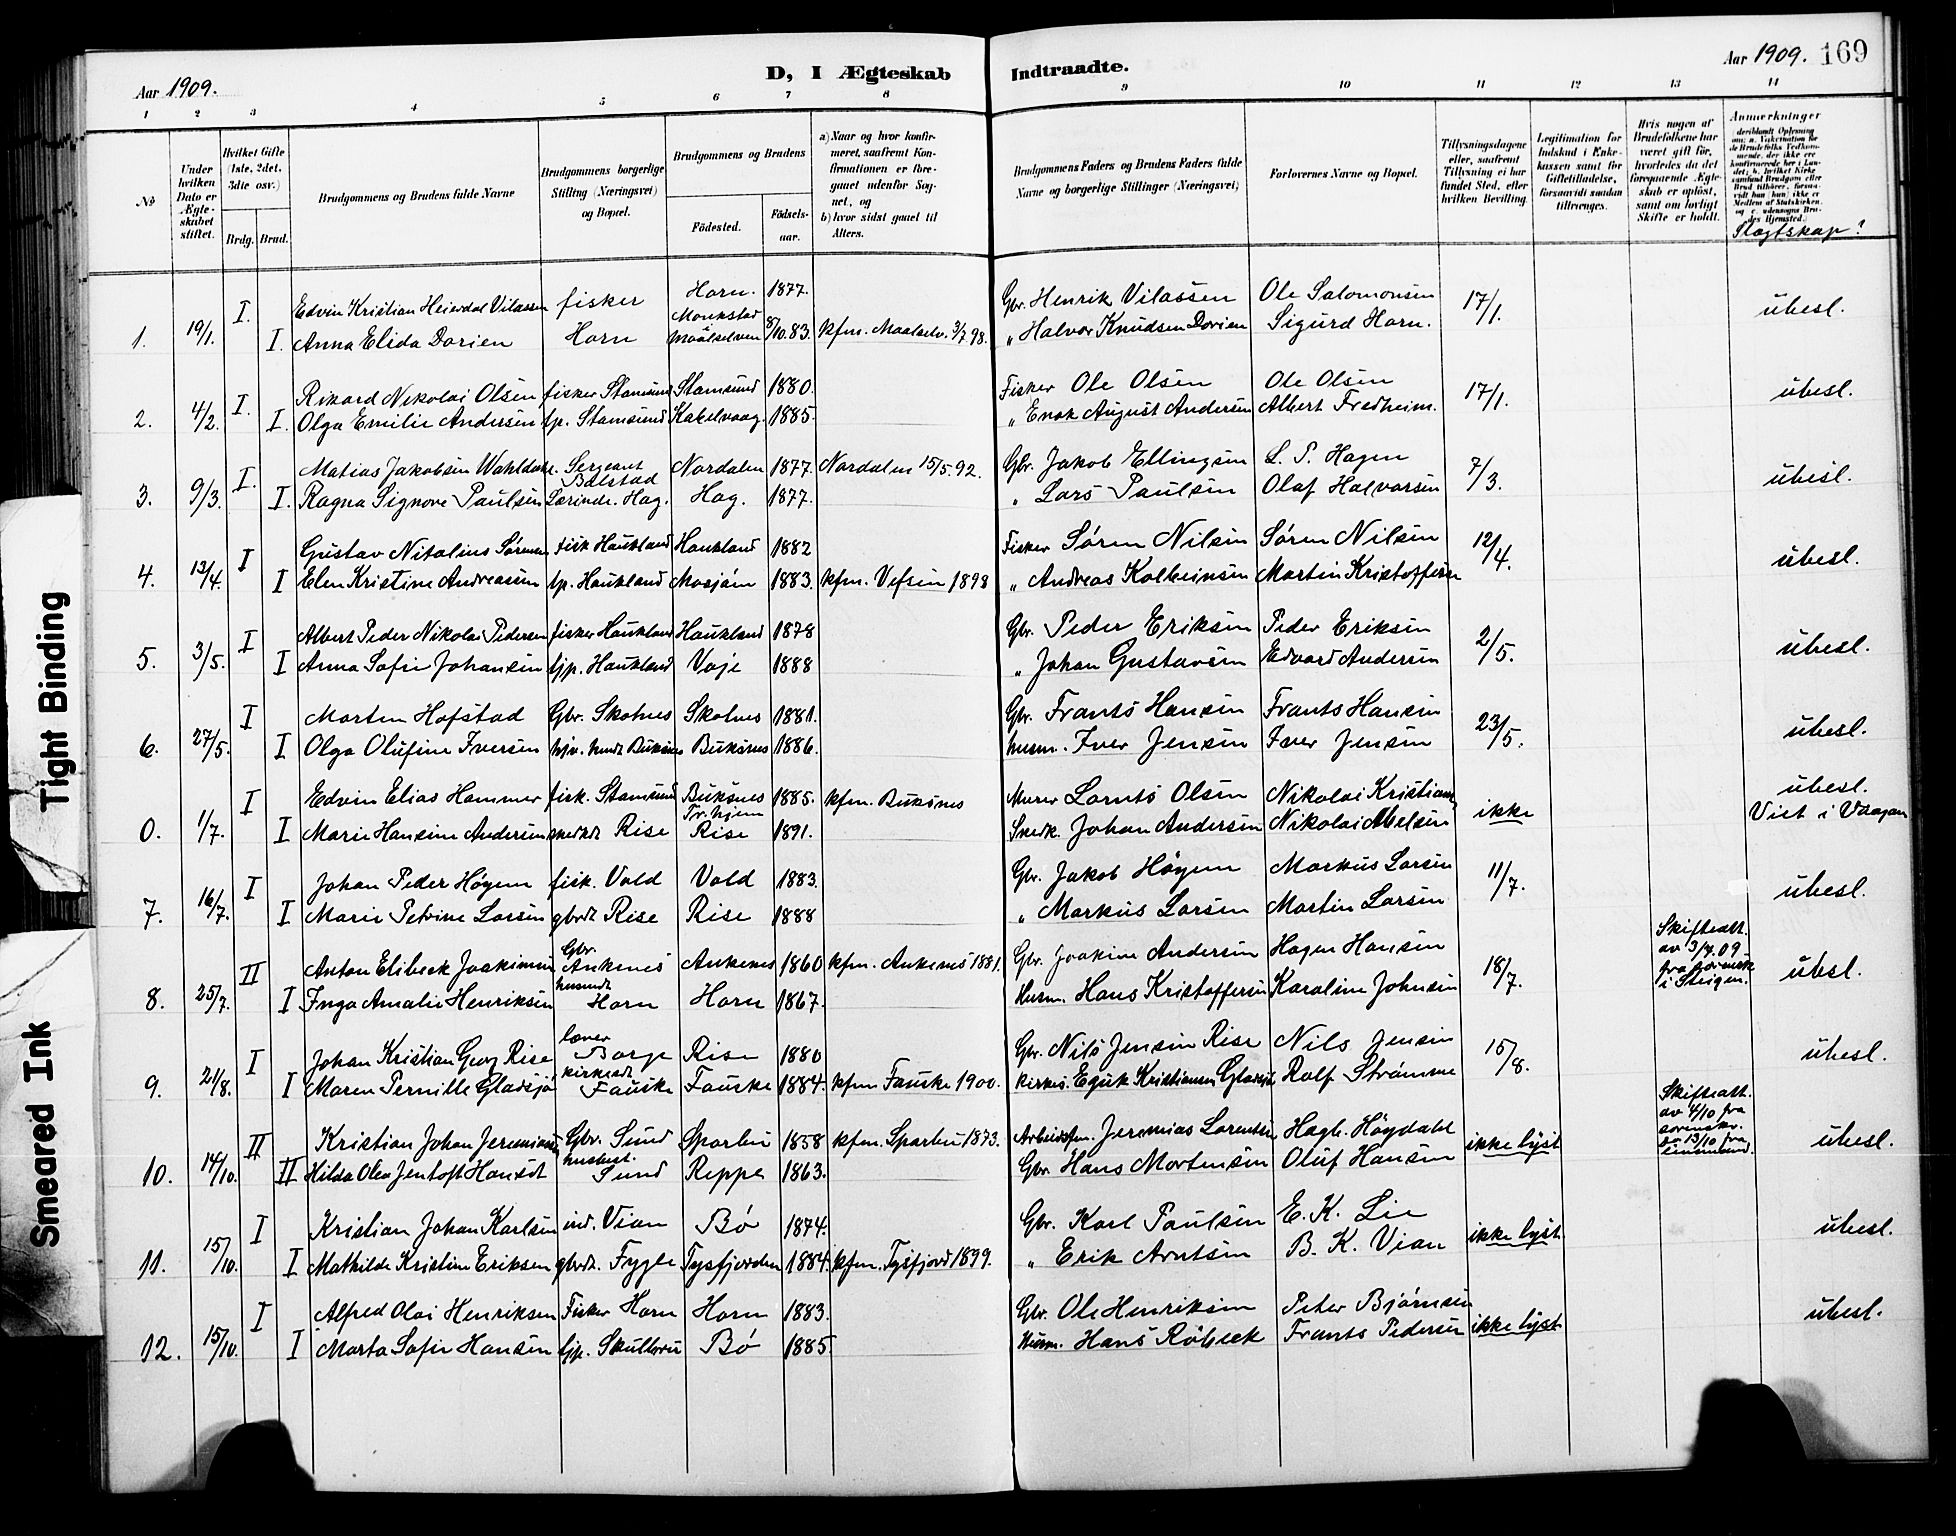 Aar 1909.
D, I Ægteskab
Indtraadte.
Aar 1909. 169
1 2 3 4 5 6 7 8 9 10 11 12 13 14
No
Under hvilken Dato er Ægteskabet stiftet.
Hvilket Gifte (1ste, 2det, 3die osv.)
Brdg. Brud.
Brudgommens og Brudens fulde Navne
Brudgommens borgerlige Stilling (Næringsvei) og Bopæl.
Brudgommens og Brudens
Födested.
Födselsaar.
a) Naar og hvor konfirmeret, saafremt Konfirmationen er foregaaet udenfor Sognet, og
b) hvor sidst gaaet til Alters.
Brudgommens Faders og Brudens Faders fulde Navne og borgerlige Stillinger (Næringsvei)
Forlovernes Navne og Bopæl.
Tillysningsdagene eller, saafremt Tillysning ei har fundet Sted, efter hvilken Bevilling.
Legitimation for Indskud i Enkekassen samt for Giftetilladelse, forsaavidt saadan tiltrænges.
Hvis nogen af Brudefolkene har været gift för, hvorledes da det foregaaende Ægteskab er oplöst, samt om lovligt Skifte er holdt.
Anmerkninger
Slægtskap?
I. Edvin Kristian Heierdal Vilassen fisker Horn. 1877. Gbr. Henrik Vilassen Ole Salomonsen 17/1. ubesl.
1. 19/1. I. Anna Elida Dorien Horn Monkstad Maalselven 8/10.83. kfm. Maalselv. 3/7 98. " Halvor Knudsen Dorien Sigurd Horn.
I. Rikard Nikolai Olsen fisker Stamsund Stamsund 1880. Fisker Ole Olsen Ole Olsen 17/1. ubesl.
2. 4/2. I. Olga Emilie Andersen tp. Stamsund Kabelvaag. 1885. " Enok August Andersen Albert Fredheim.
I. Matias Jakobsen Wahldahl. Sergeant Balstad Nordalen 1877. Nordalen 15/5.92. Gbr. Jakob Ellingsen L. P. Hagen 7/3. ubesl.
3. 9/3. I. Ragna Signove Paulsen Lærinde. Hag. Hag. 1877. " Lars Paulsen Olaf Halvorsen
I Gustav Nitalius Sørensen fisk Haukland Haukland 1882 Fisker Søren Nilsen Søren Nilsen 12/4. ubesl.
4. 13/4. I Elen Kristine Andreassen tp. Haukland Mosjøen 1883. kfm. Vefsen 1898 " Andreas Kolbeinsen Martin Kristoffersen
I Albert Peder Nikolai Pedersen fisker Haukland Haukland 1878 Gbr. Peder Eriksen Peder Eriksen 2/5. ubesl.
5. 3/5. I Anna Sofie Johansen tjp. Haukland Voje 1888 " Johan Gustavsen Edvard Andersen
I Morten Hofstad Gbr. Skotnes Skotnes 1881. Gbr. Frants Hansen Frants Hansen 23/5. ubesl.
6. 27/5. I Olga Olufine Iversen Buksnes Buksnes 1886. husm. Iver Jensen Iver Jensen
I Edvin Elias Hammer fisk. Stamsund Buksnes Pr.hjem 1885. kfm. Buksnes Murer Lornts Olsen Nikolai Kristians ikke ubesl. Viet i Vaagan
0. 1/7. I Marie Hansine Andersen snedkdt Rise Rise 1891. Snedk. Johan Andersen Nikolai Abelsen
I Johan Peder Høyem fisk. Vold Vold 1883. Gbr. Jakob Høyem Markus Larsen 11/7. ubesl.
7. 16/7. I Marie Petrine Larsen gbrdt Rise Rise 1888 " Markus Larsen Martin Larsen
II Anton Elibeck Joakimsen Gbr. Ankenes Ankenes 1860 kfm. Ankenes 1881. Gbr. Joakim Andersen Hagen Hansen 18/7. Skifteatt. av 3/7.09 fra sorenskr. i Steigen. ubesl.
8. 25/7. I Inga Amalie Henriksen husmdt Horn Horn 1867. Husm. Hans Kristoffersen Karoline Johnsen
I Johan Kristian Georg Rise lærer Borge Rise 1880 Gbr. Nils Jensen Rise Nils Jensen 15/8. ubesl.
9. 21/8. I Maren Pernille Gladsjø kirkesdt Fauske Fauske 1884. kfm Fauske 1900. kirkes. Kristiansen Gladsjø Rolf Strømme
II Kristian Johan Jeremiassen Gbr. Sund Sparbu 1858 kfm. Sparbu 1873. Arbeidsfm. Jeremias Lorentsen Hagb. Høydahl ikke lyst Skifteatt. av 4/10 fra sorenskr. 13/10 fra ubesl.
10. 14/10. II Hilda Olea Jentoft Hansdt husbest. Sund Reppe 1863. Gbr. Hans Mortensen Oluf Hansen
I Kristian Johan Karlsen ind. Vian Bø 1874. Gbr. Karl Paulsen E. K. Lie ikke lyst. ubesl.
11. 15/10. I Mathilde Kristine Eriksen gbrdt. Fygle Tysfjorden 1884. kfm. Tysfjord 1899. " Erik Arntsen B. K. Vian
I Alfred Olai Henriksen Fisker Horn Horn 1883. Gbr. Ole Henriksen Peter Bjørnsen ikke lyst. ubesl.
12. 15/10. I Marta Sofie Hansen tjp. Skulbru Bø 1885. Husm. Hans Røbeck Frants Pedersen
Tight Binding
Smeared Ink